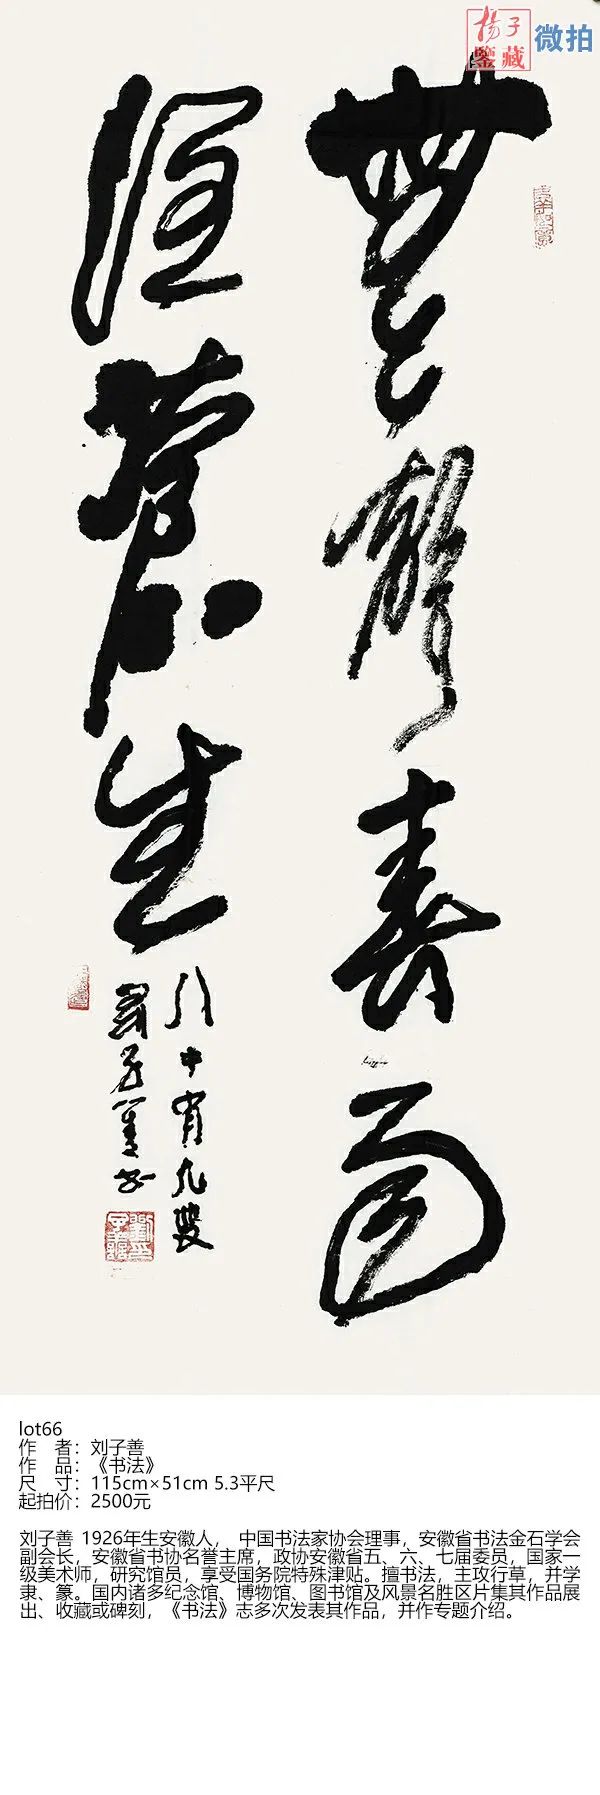 揚子
鉴藏
微拍
無聲春雨
潤蒼生
八十有九叟
劉子善书
lot66
作　者：刘子善
作　品：《书法》
尺　寸：115cm×51cm 5.3平尺
起拍价：2500元
刘子善 1926年生安徽人， 中国书法家协会理事，安徽省书法金石学会
副会长，安徽省书协名誉主席，政协安徽省五、六、七届委员，国家一
级美术师，研究馆员，享受国务院特殊津贴。擅书法，主攻行草，并学
隶、篆。国内诸多纪念馆、博物馆、图书馆及风景名胜区片集其作品展
出、收藏或碑刻，《书法》志多次发表其作品，并作专题介绍。